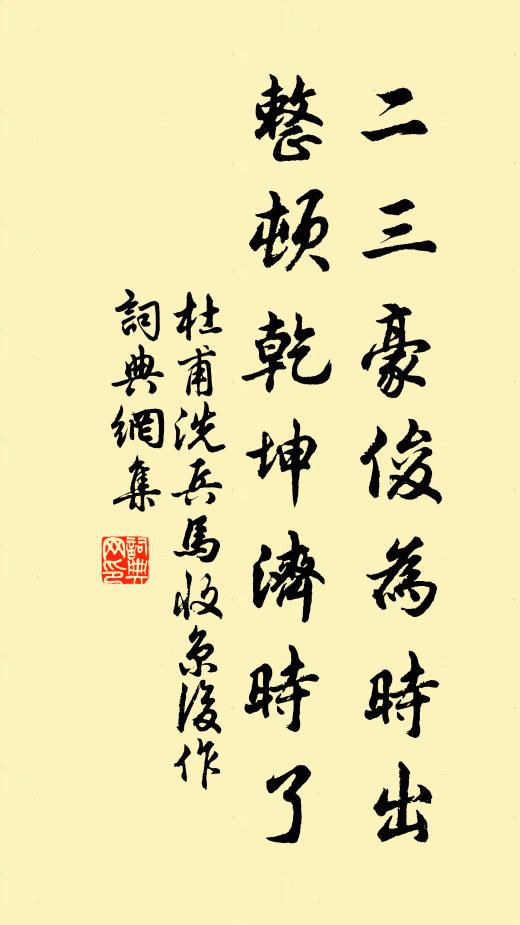 二三豪俊為時出
整頓乾坤濟時了
杜甫洗兵馬收京後作
詞典網集
詞典网印